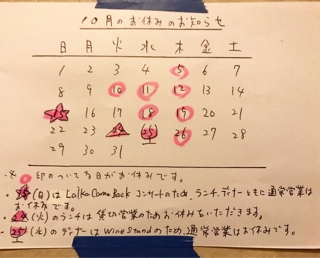 10月のお休みのお知らせ
日 月 火 水 木 金 土
1 2 3 4 5 6 7
8 9 10 11 12 13 14
15 16 17 18 19 20 21
22 23 24 25 26 27 28
29 30 31
印のついてる日がお休みです。
15(日)は Come Back コンサートのため、ランチ、ディナーともに通常営業は
お休みです。
24(火)のランチは貸切営業のためお休みをいただきます。
25(水)のディナーは Wine Standのため、通常営業はお休みです。